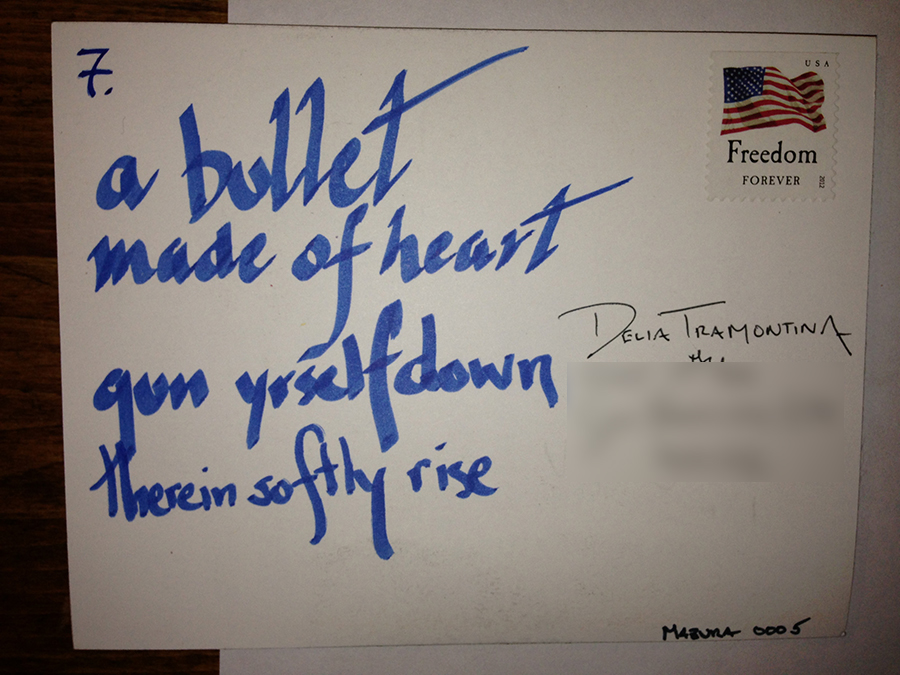 7.
a bullet
made of heart
gun yrself down
therein softly rise
USA
Freedom
FOREVER
2012
DELIA TRAMONTINA
MAZURA 0005